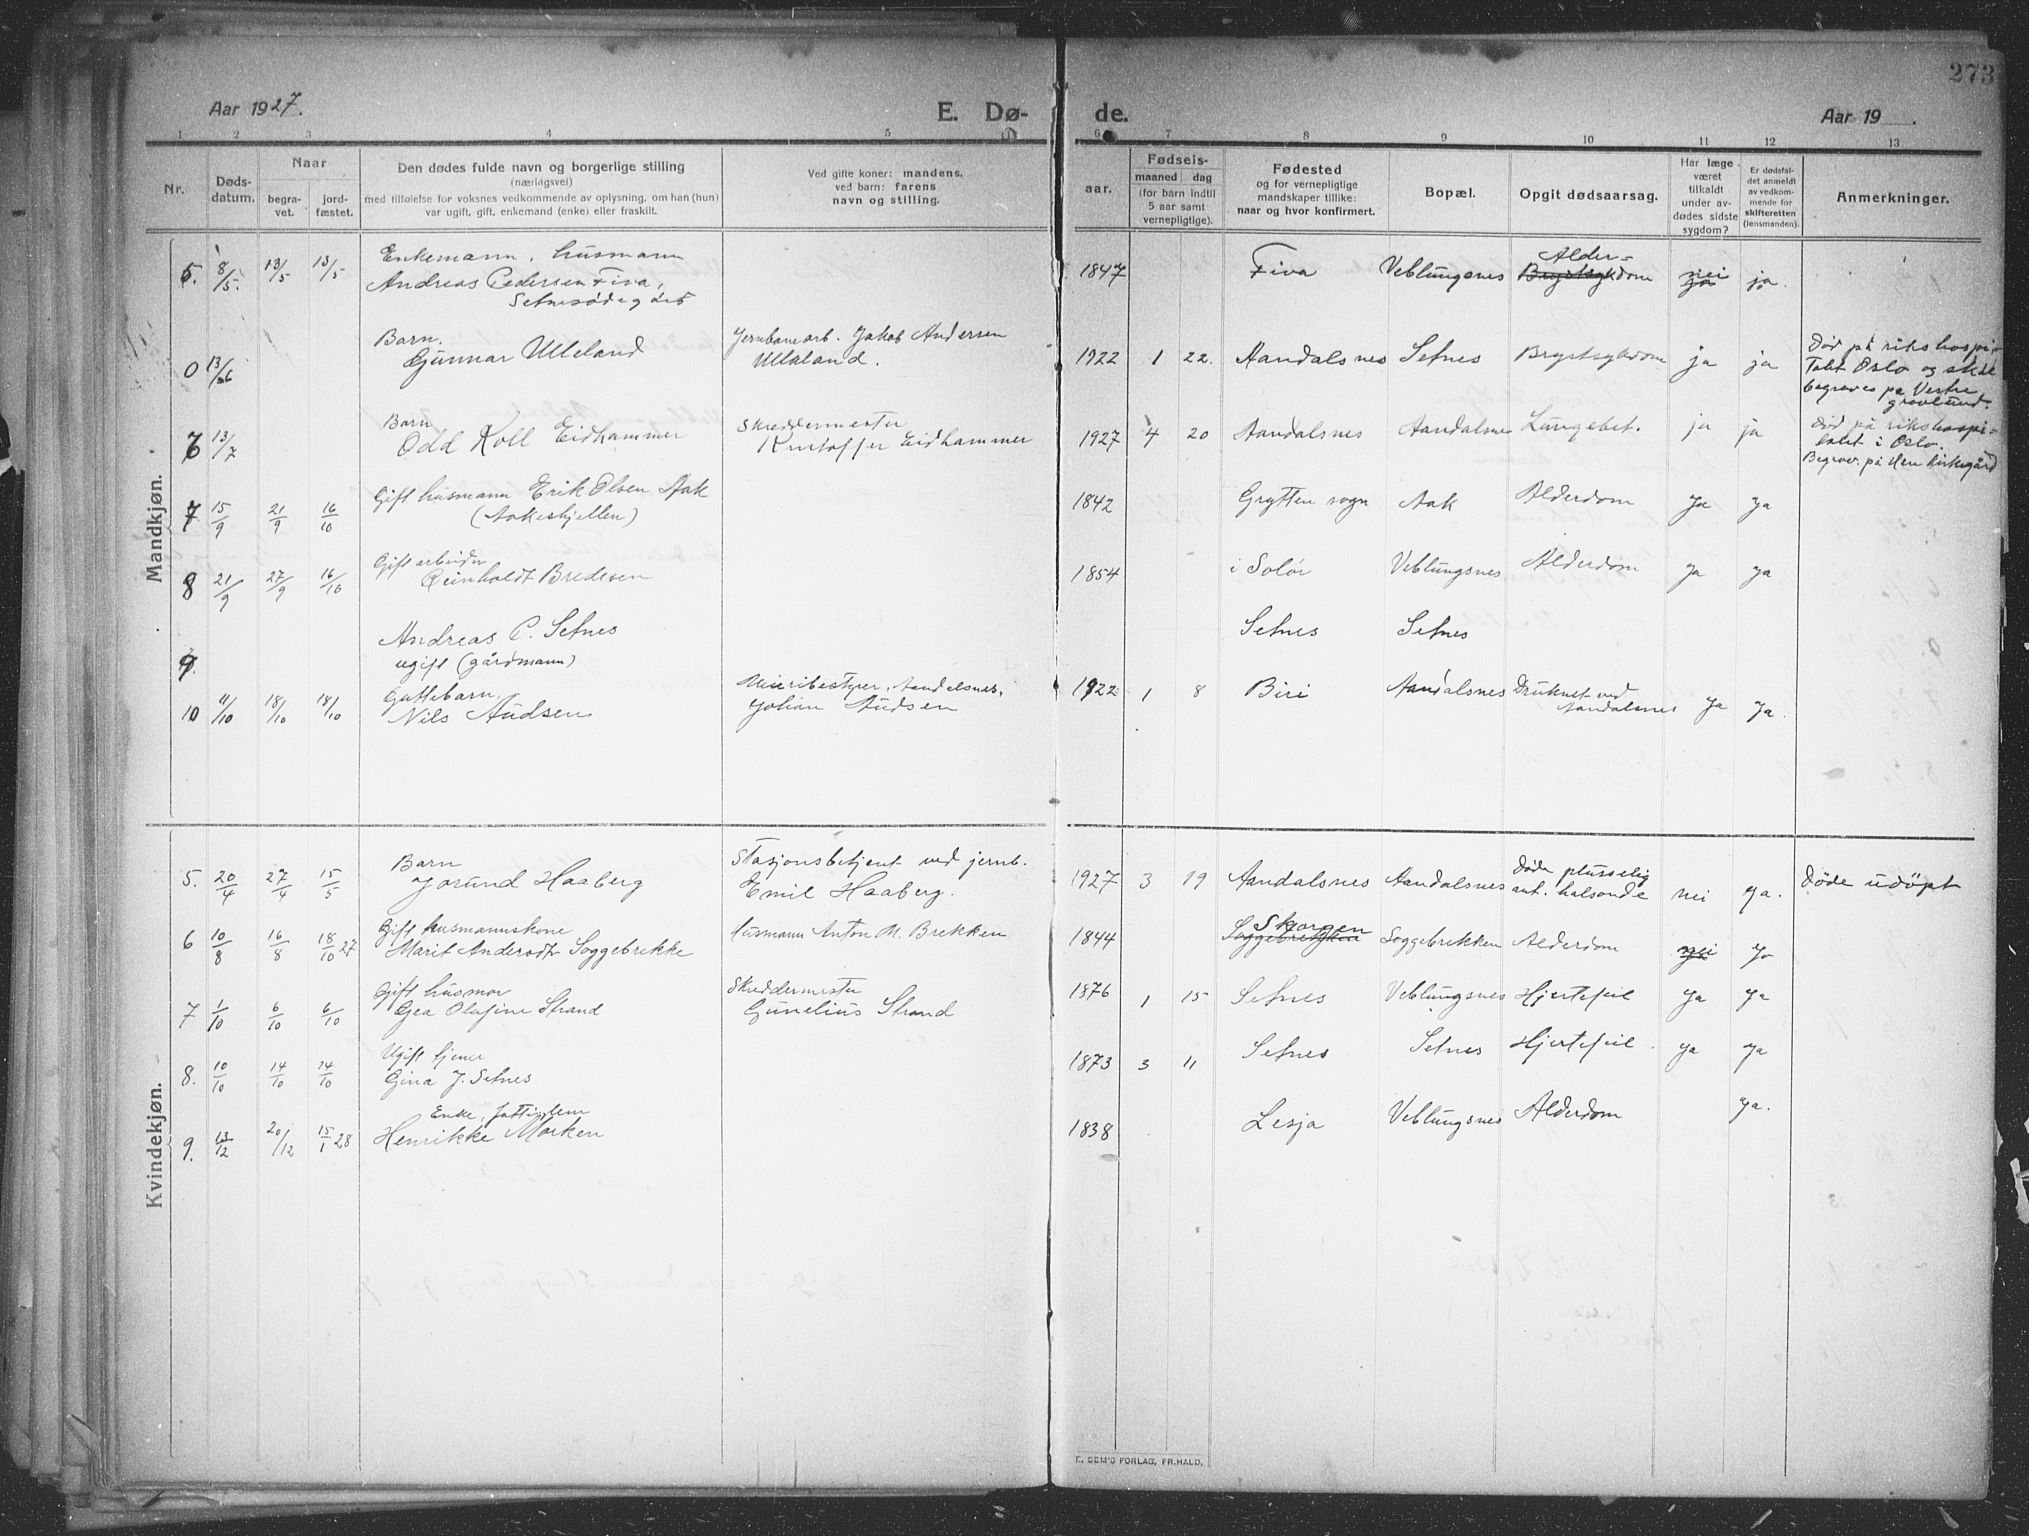 273
Aar 1927.
E. Dø-
de.
Aar 19 .
1 2 3 4 5 6 7 8 9 10 11 12 13
Nr.
Døds-
datum.
Naar
begra-
vet.
jord-
fæstet.
Den dødes fulde navn og borgerlige stilling
(næringsvei)
med tilføielse for voksnes vedkommende av oplysning, om han (hun)
var ugift, gift, enkemand (enke) eller fraskilt.
Ved gifte koner: mandens,
ved barn: farens
navn og stilling.
aar.
Fødsels-
maaned dag
(for barn indtil
5 aar samt
vernepligtige).
Fødested
og for vernepligtige
mandskaper tillike:
naar og hvor konfirmert.
Bopæl.
Opgit dødsaarsag.
Har læge
været
tilkaldt
under av-
dødes sidste
sygdom?
Er dødsfal-
det anmeldt
av vedkom-
mende for
skifteretten
(lensmanden).
Anmerkninger.
Mandkjøn.
Enkemann, husmann
5. 8/5. 13/5 13/5 Andreas Pedersen Fiva, 1847 Fiva Veblungsnes Alder-
Setnesødegård Brystsykdom nei ja ja
Barn. Jernbanearb. Jakob Andersen
0 13/6 Gunnar Ulleland Ullaland. 1922 1 22. Aandalsnes Setnes Brystsykdom ja ja Død på rikshospi-
talet Oslo og skal
begraves på Vestre
gravlund.
Barn Skreddermester
6 13/7 Odd Koll Eidhammer Kristoffer Eidhammer 1927 4 20 Aandalsnes Aandalsnes Lungebet. ja ja Død på rikshospi-
talet i Oslo.
Begrav. på Hen kirkegård
7 15/9 21/9 16/10 Gift husmann Erik Olsen Aak 1842 Grytten sogn Aak Alderdom ja ja
(Aakeshjellen)
Gift arbeider
8 21/9 27/9 16/10 Reinholdt Bredesen 1854 i Solør Veblungsnes Alderdom ja ja
9. Andreas P. Setnes Setnes Setnes
ugift (gårdmann)
Guttebarn. Meieribestyrer, Aandalsnes,
10 11/10 18/10 18/10 Nils Audsen Johan Audsen 1922 1 8 Biri Aandalsnes Druknet ved
Aandalsnes ja ja.
Kvindekjøn.
Barn Stasjonsbetjent ved jernb.
5. 20/4 27/4 15/5 Jorund Haaberg Emil Haaberg. 1927 3 19 Aandalsnes Aandalsnes Døde plusselig
ant. halsonde nei ja. Døde udöpt
Gift husmannskone
6 10/8 16/8 18/10 27 Marit Andersdtr Soggebrekke husmann Anton M. Brekken 1844 Skorgen
Soggebrekken Soggebrekken Alderdom nei ja
Gift husmor Skreddermester
7 1/10 6/10 6/10 Gea Olufine Strand Gunelius Strand 1876 1 15 Setnes Veblungsnes Hjertefeil ja ja
Ugift tjener
8. 10/10 14/10 14/10 Gina J. Setnes 1873 3 11 Setnes Setnes Hjertefeil. ja ja
Enke, fattiglem
9. 13/12 20/12 15/1 28 Henrikke Morken 1838 Lesja Veblungsnes Alderdom ja.
E. SEM'S FORLAG, FR.HALD.